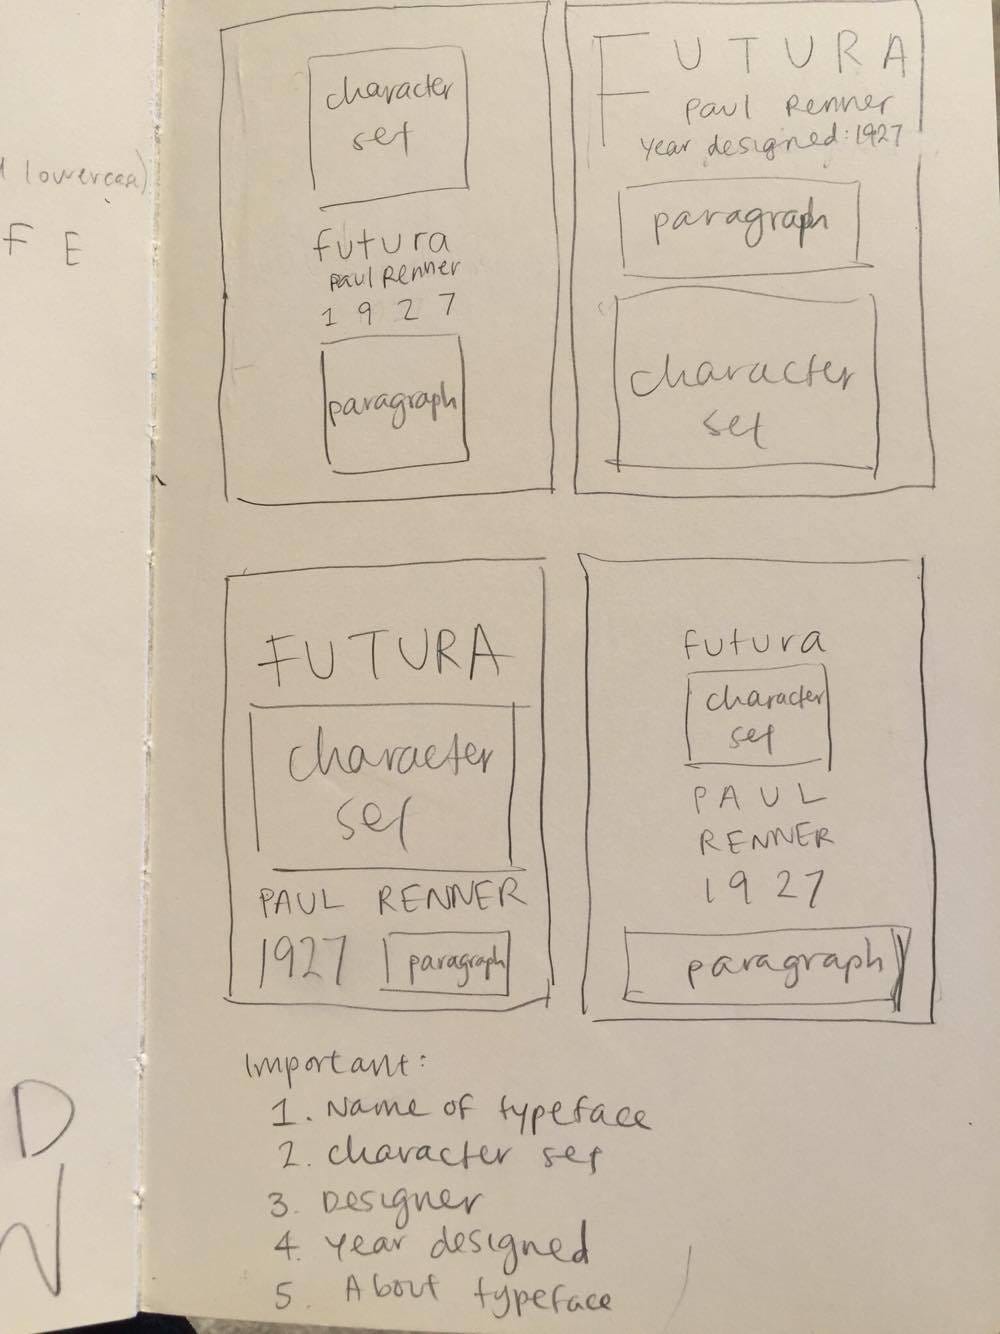 lowercase)
F E
D
N
character
set
futura
Paul Renner
1927
paragraph
FUTURA
Paul Renner
Year designed: 1927
paragraph
character
set
FUTURA
character
set
PAUL RENNER
1927
paragraph
futura
character
set
PAUL
RENNER
1927
paragraph
Important:
1. Name of typeface
2. character set
3. Designer
4. Year designed
5. About typeface